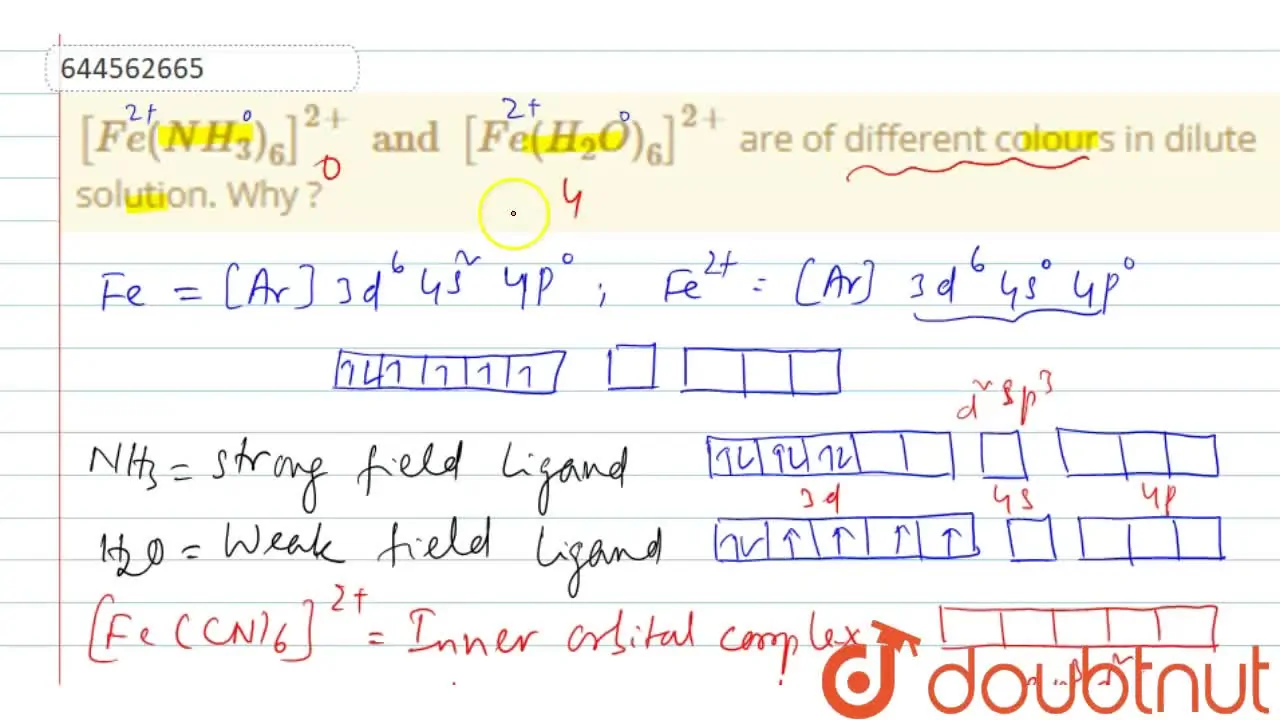 644562665
2+ 0 2+ 0
[Fe(NH₃)₆]²⁺ and [Fe(H₂O)₆]²⁺ are of different colours in dilute
0 4
solution. Why ?
Fe = [Ar] 3d⁶ 4s² 4p⁰ ; Fe²⁺ = [Ar] 3d⁶ 4s⁰ 4p⁰
d²sp³
NH₃ = strong field ligand
3d 4s 4p
H₂O = Weak field ligand
[Fe(CN)₆]²⁺ = Inner orbital complex
doubtnut